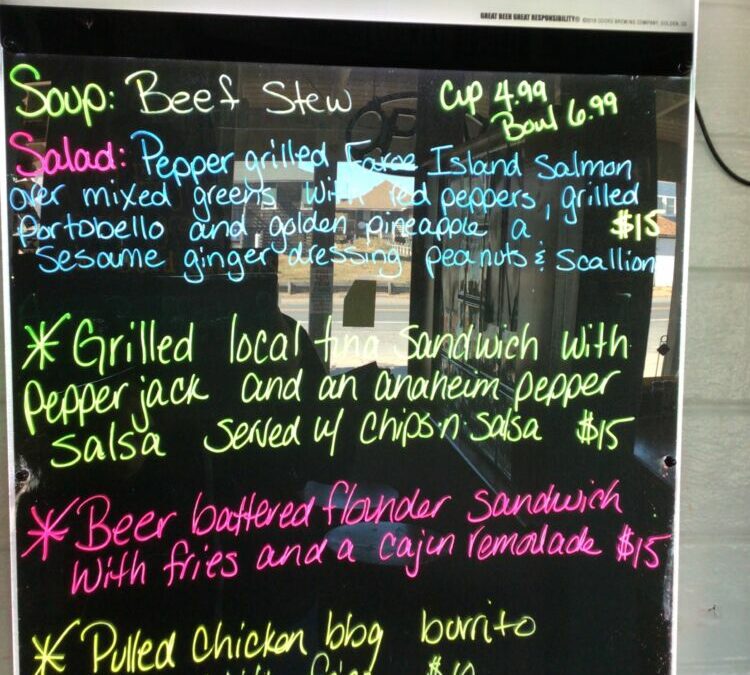 GREAT BEER GREAT RESPONSIBILITY® ©2018 COORS BREWING COMPANY, GOLDEN, CO
Soup: Beef Stew Cup 4.99
Bowl 6.99
Salad: Pepper grilled Faroe Island Salmon
over mixed greens with red peppers, grilled
portobello and golden pineapple a $15
Sesame ginger dressing peanuts & scallion
*Grilled local tuna Sandwich with
pepper jack and an anaheim pepper
salsa served w/ chips n salsa $15
*Beer battered flounder sandwich
with fries and a cajun remolade $15
*Pulled chicken bbq burrito
with fries